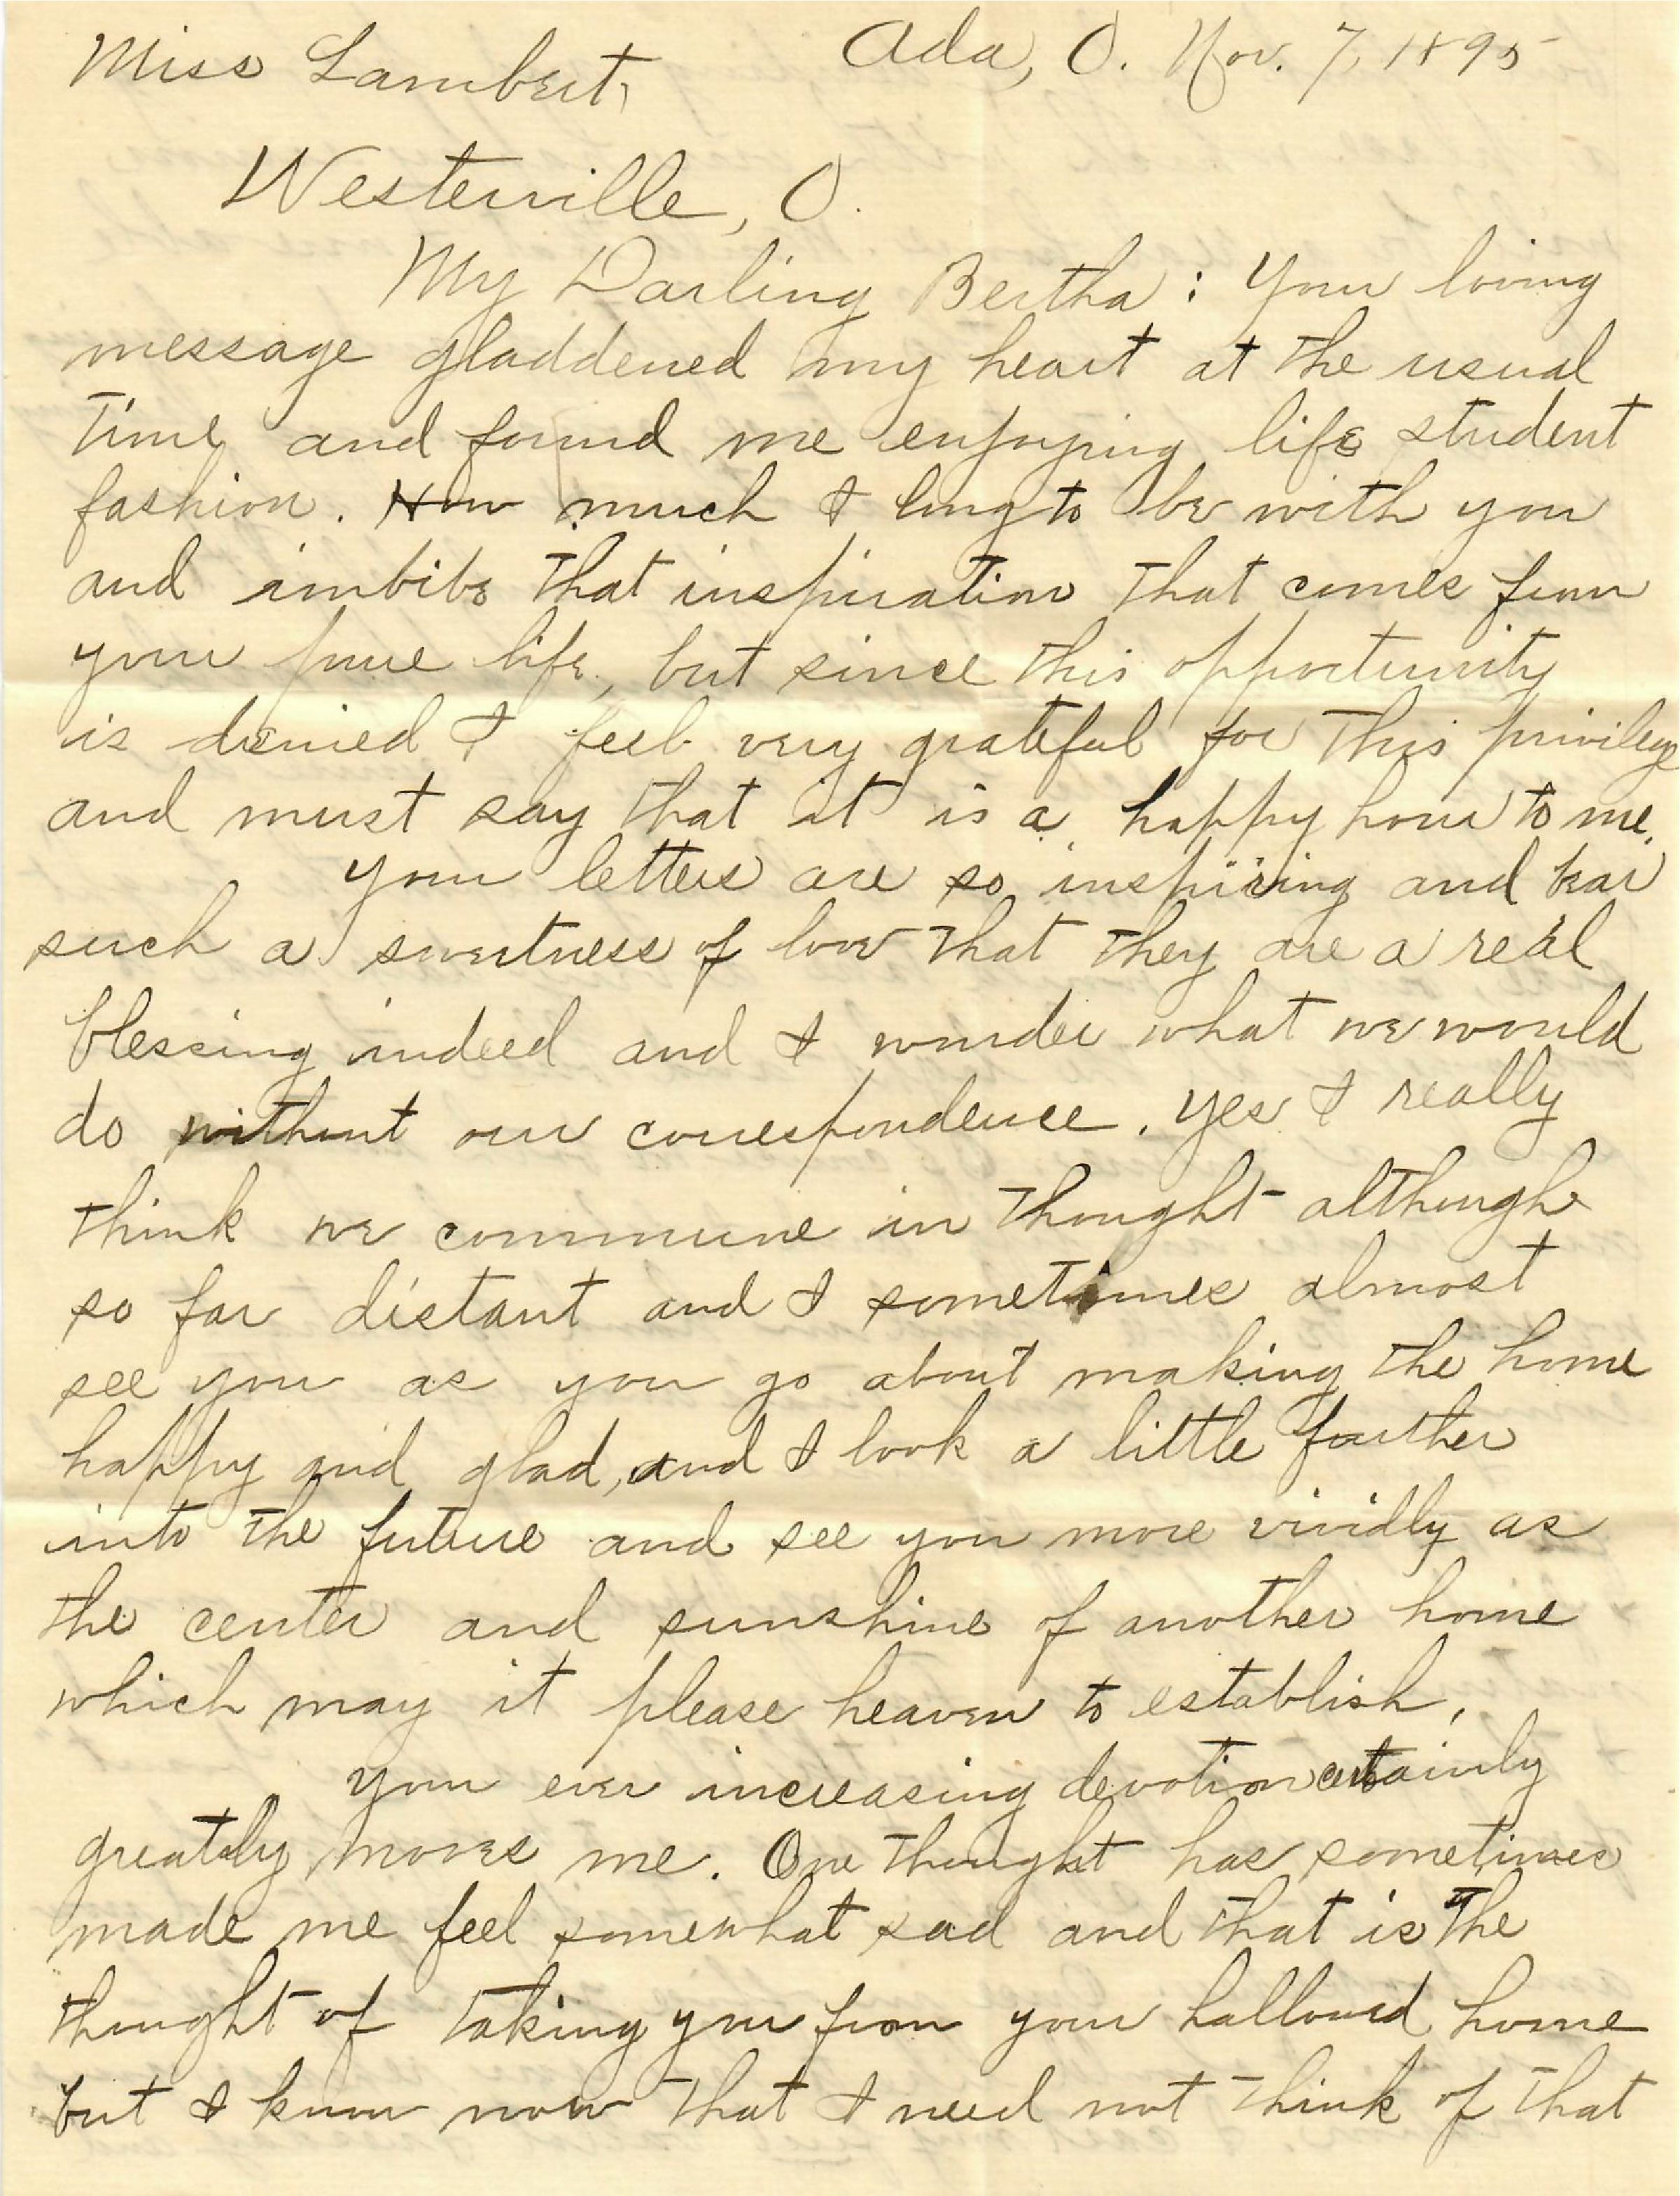 Miss Lambert,
Ada, O. Nov. 7, 1895
Westerville, O.
My Darling Bertha: Your loving
message gladdened my heart at the usual
time and found me enjoying life student
fashion. How much I long to be with you
and imbibe that inspiration that comes from
your pure life, but since this opportunity
is denied I feel very grateful for this privilege
and must say that it is a happy hour to me.
Your letters are so inspiring and bear
such a sweetness of love that they are a real
blessing indeed and I wonder what we would
do without our correspondence. Yes I really
think we commune in thought although
so far distant and I sometimes almost
see you as you go about making the home
happy and glad, and I look a little further
into the future and see you more vividly as
the center and sunshine of another home
which may it please heaven to establish.
Your ever increasing devotion certainly
greatly moves me. One thought has sometimes
made me feel somewhat sad and that is the
thought of taking you from your hallowed home
but I know now that I need not think of that